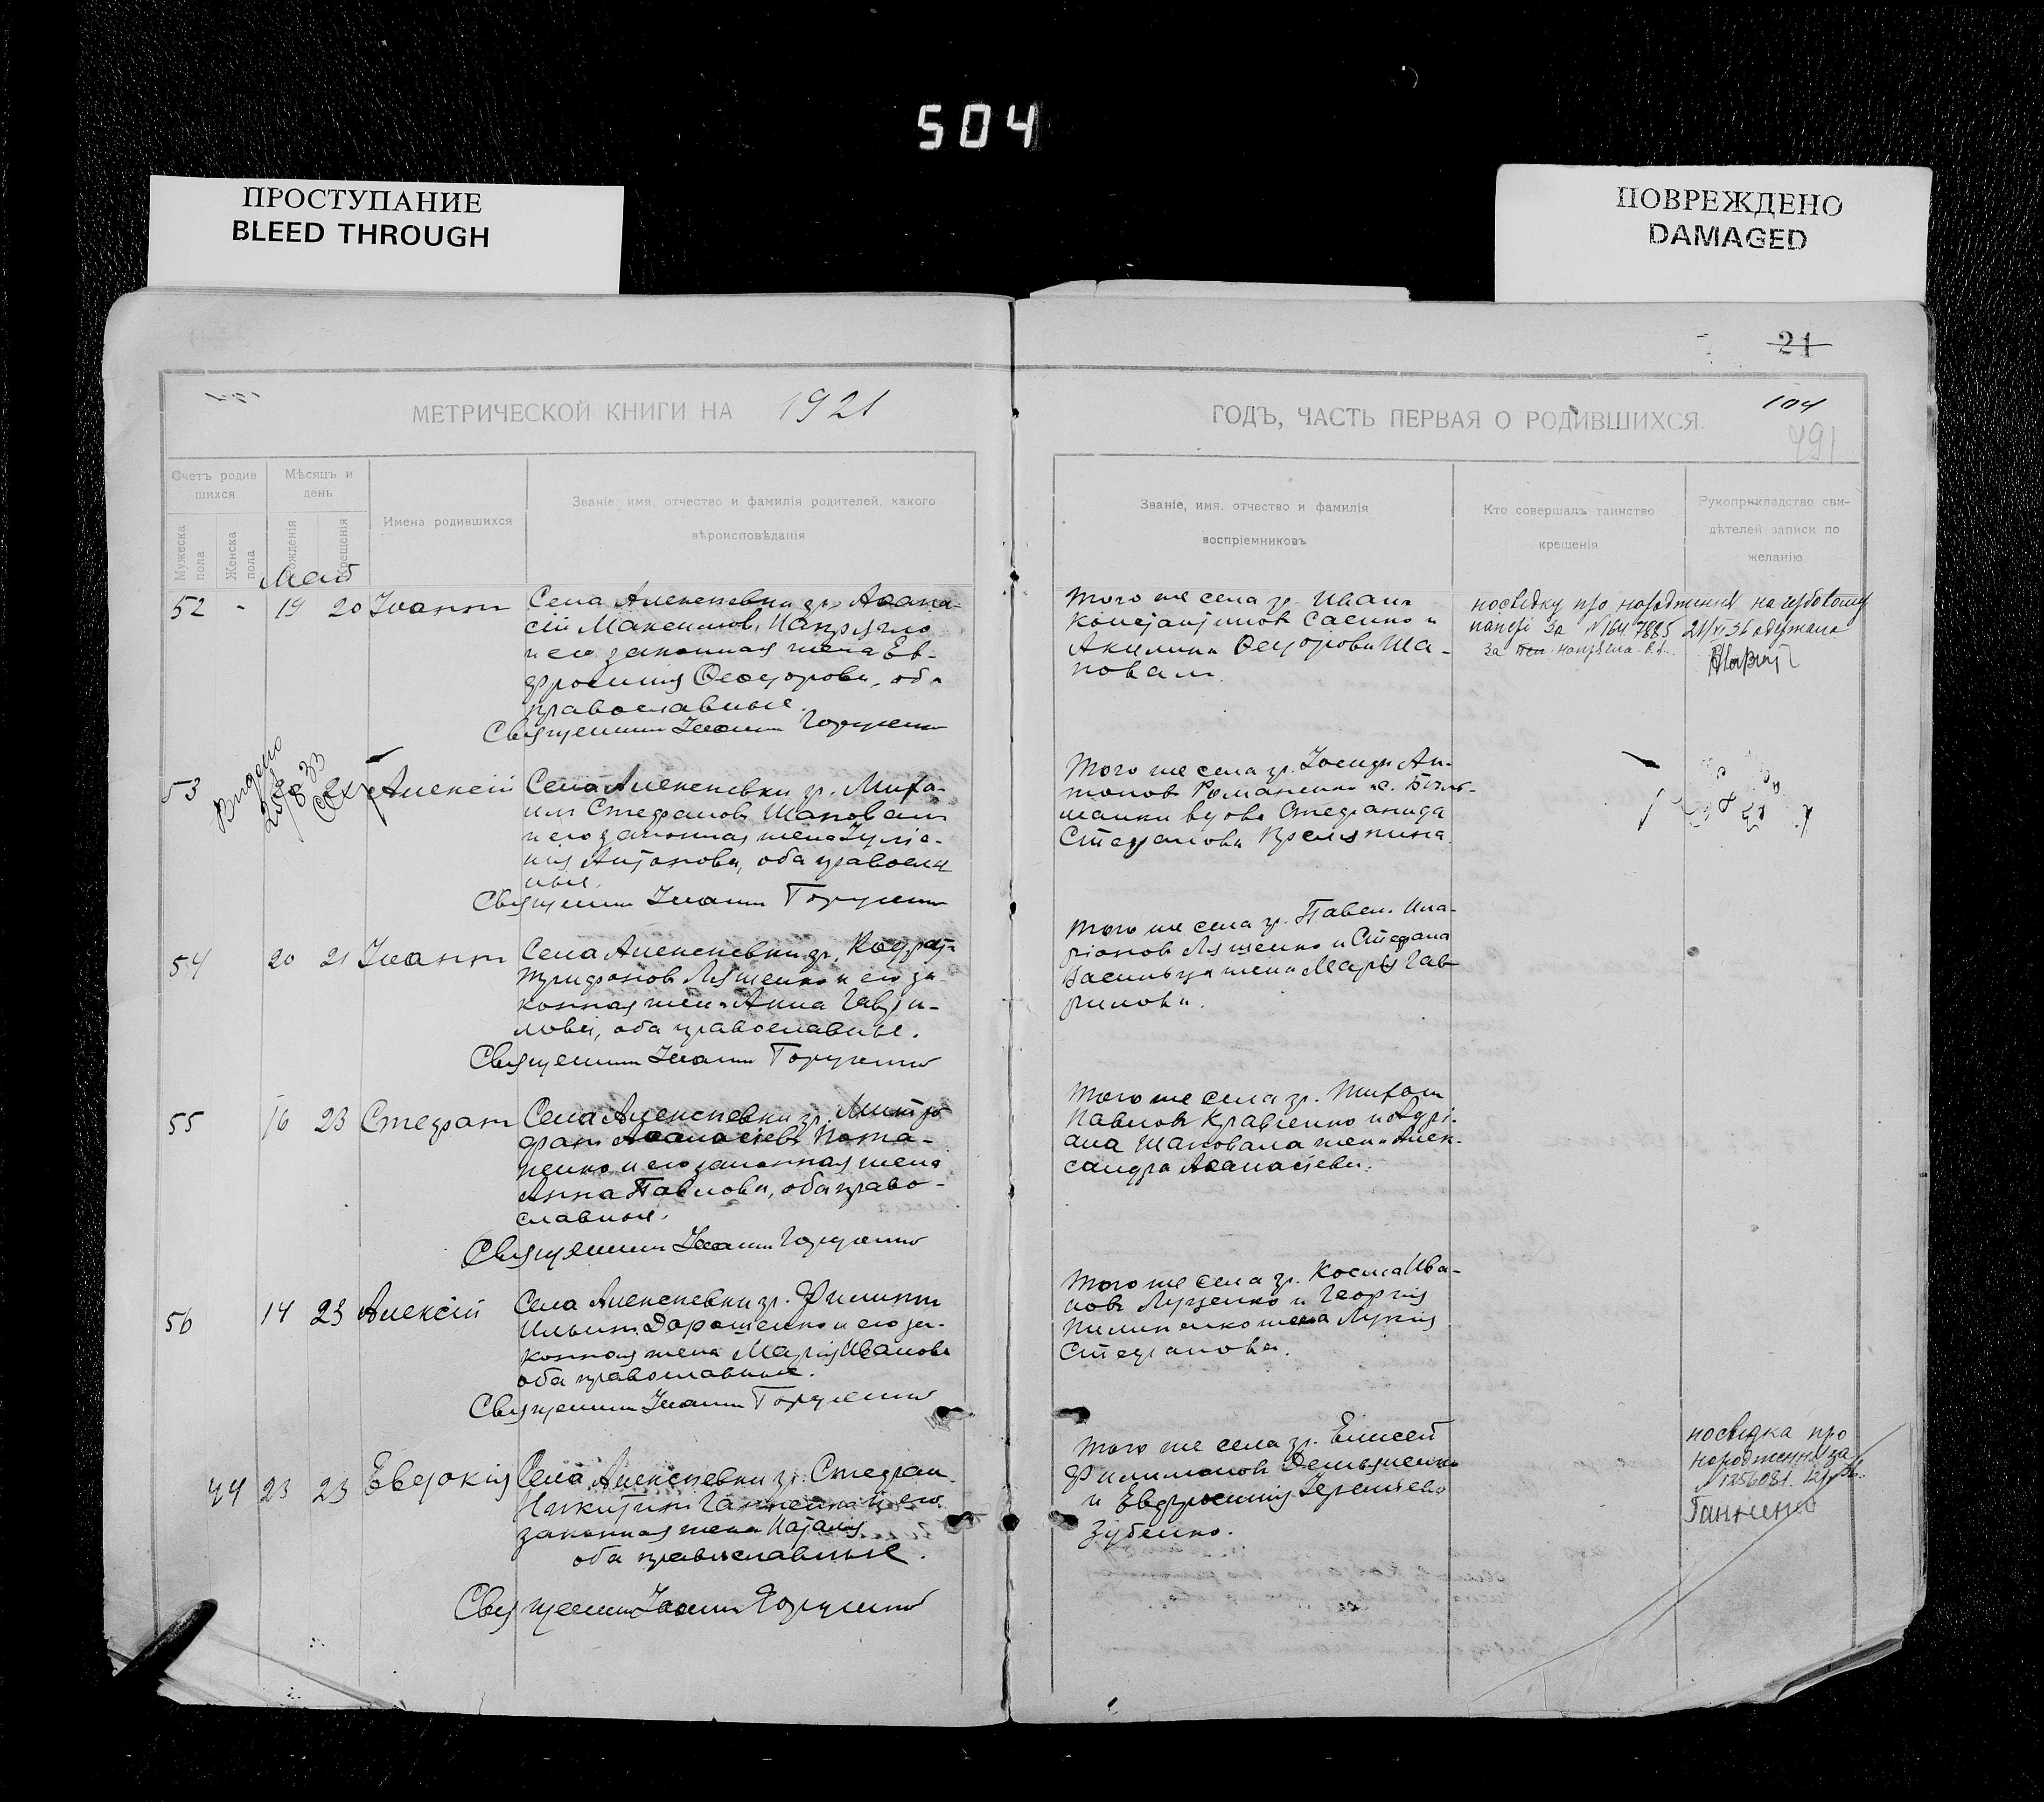 504
ПРОСТУПАНИЕ
BLEED THROUGH
ПОВРЕЖДЕНО
DAMAGED
21
МЕТРИЧЕСКОЙ КНИГИ НА 1921
ГОДЪ, ЧАСТЬ ПЕРВАЯ О РОДИВШИХСЯ.
104
491
Счетъ родив
шихся
Мужеска пола
Женска пола
Мѣсяцъ и
день
Рожденія
Крещенія
Имена родившихся
Званіе, имя, отчество и фамилія родителей, какого
вѣроисповѣданія
Званіе, имя, отчество и фамилія
воспріемниковъ
Кто совершалъ таинство
крещенія
Рукоприкладство сви-
дѣтелей записи по
желанію
Май
52 - 19 20 Іоаннъ
Села Алексѣевки гр. Аѳана-
сій Максимовъ Напрягло
и его законная жена Ев-
фросинія Ѳеодорова, оба
православные.
Священникъ Іоаннъ
Того же села гр. Иванъ
Константиновъ Саенко и
Акилина Ѳеодорова Ша-
повалъ.
посвідку про народження на гербовому
папері за № 164 7885 21/VI 36 одержала
за
53
Видано
25/8 33
21 Алексій
Села Алексѣевки гр. Миха-
илъ Стефановъ Шаповалъ
и его законная жена Іуліа-
нія Антонова, оба православ
ные.
Священникъ Іоаннъ
Того же села гр. Іосифъ Ан-
тоновъ Романенко и с. Боль-
шанки вдова Стефанида
Стефанова
54 20 21 Іоаннъ
Села Алексѣевки гр. Кодратъ
Трифоновъ Лященко и его за-
конная жена Анна Гаври-
лова, оба православные.
Священникъ Іоаннъ
Того же села гр. Павелъ Ила-
ріоновъ Лященко и Стефана
жена Марія Гав-
рилова.
55 16 23 Стефанъ
Села Алексѣевки гр. Митро
фанъ Аѳанасіевъ Пота-
пенко и его законная жена
Анна Павлова, оба право-
славные.
Священникъ Іоаннъ
Того же села гр. Тихонъ
Павловъ Кравченко и Адрі-
ана Шаповала жена Алек-
сандра Аѳанасіева.
56 14 23 Алексій
Села Алексѣевки гр. Филиппъ
Ильинъ Дорошенко и его за-
конная жена Марія Иванова
оба православные.
Священникъ Іоаннъ
Того же села гр. Косма Ива-
новъ Луценко и Георгія
Пилипенко жена Лукія
Стефанова.
44 23 23 Евдокія
Села Алексѣевки гр. Стефанъ
Никитинъ Ганненко и его
законная жена Наталія
оба православные.
Священникъ Іоаннъ
Того же села гр. Елисей
Филимоновъ
и Евфросинія
Зубенко.
посвідка про
народження за
Ганненко